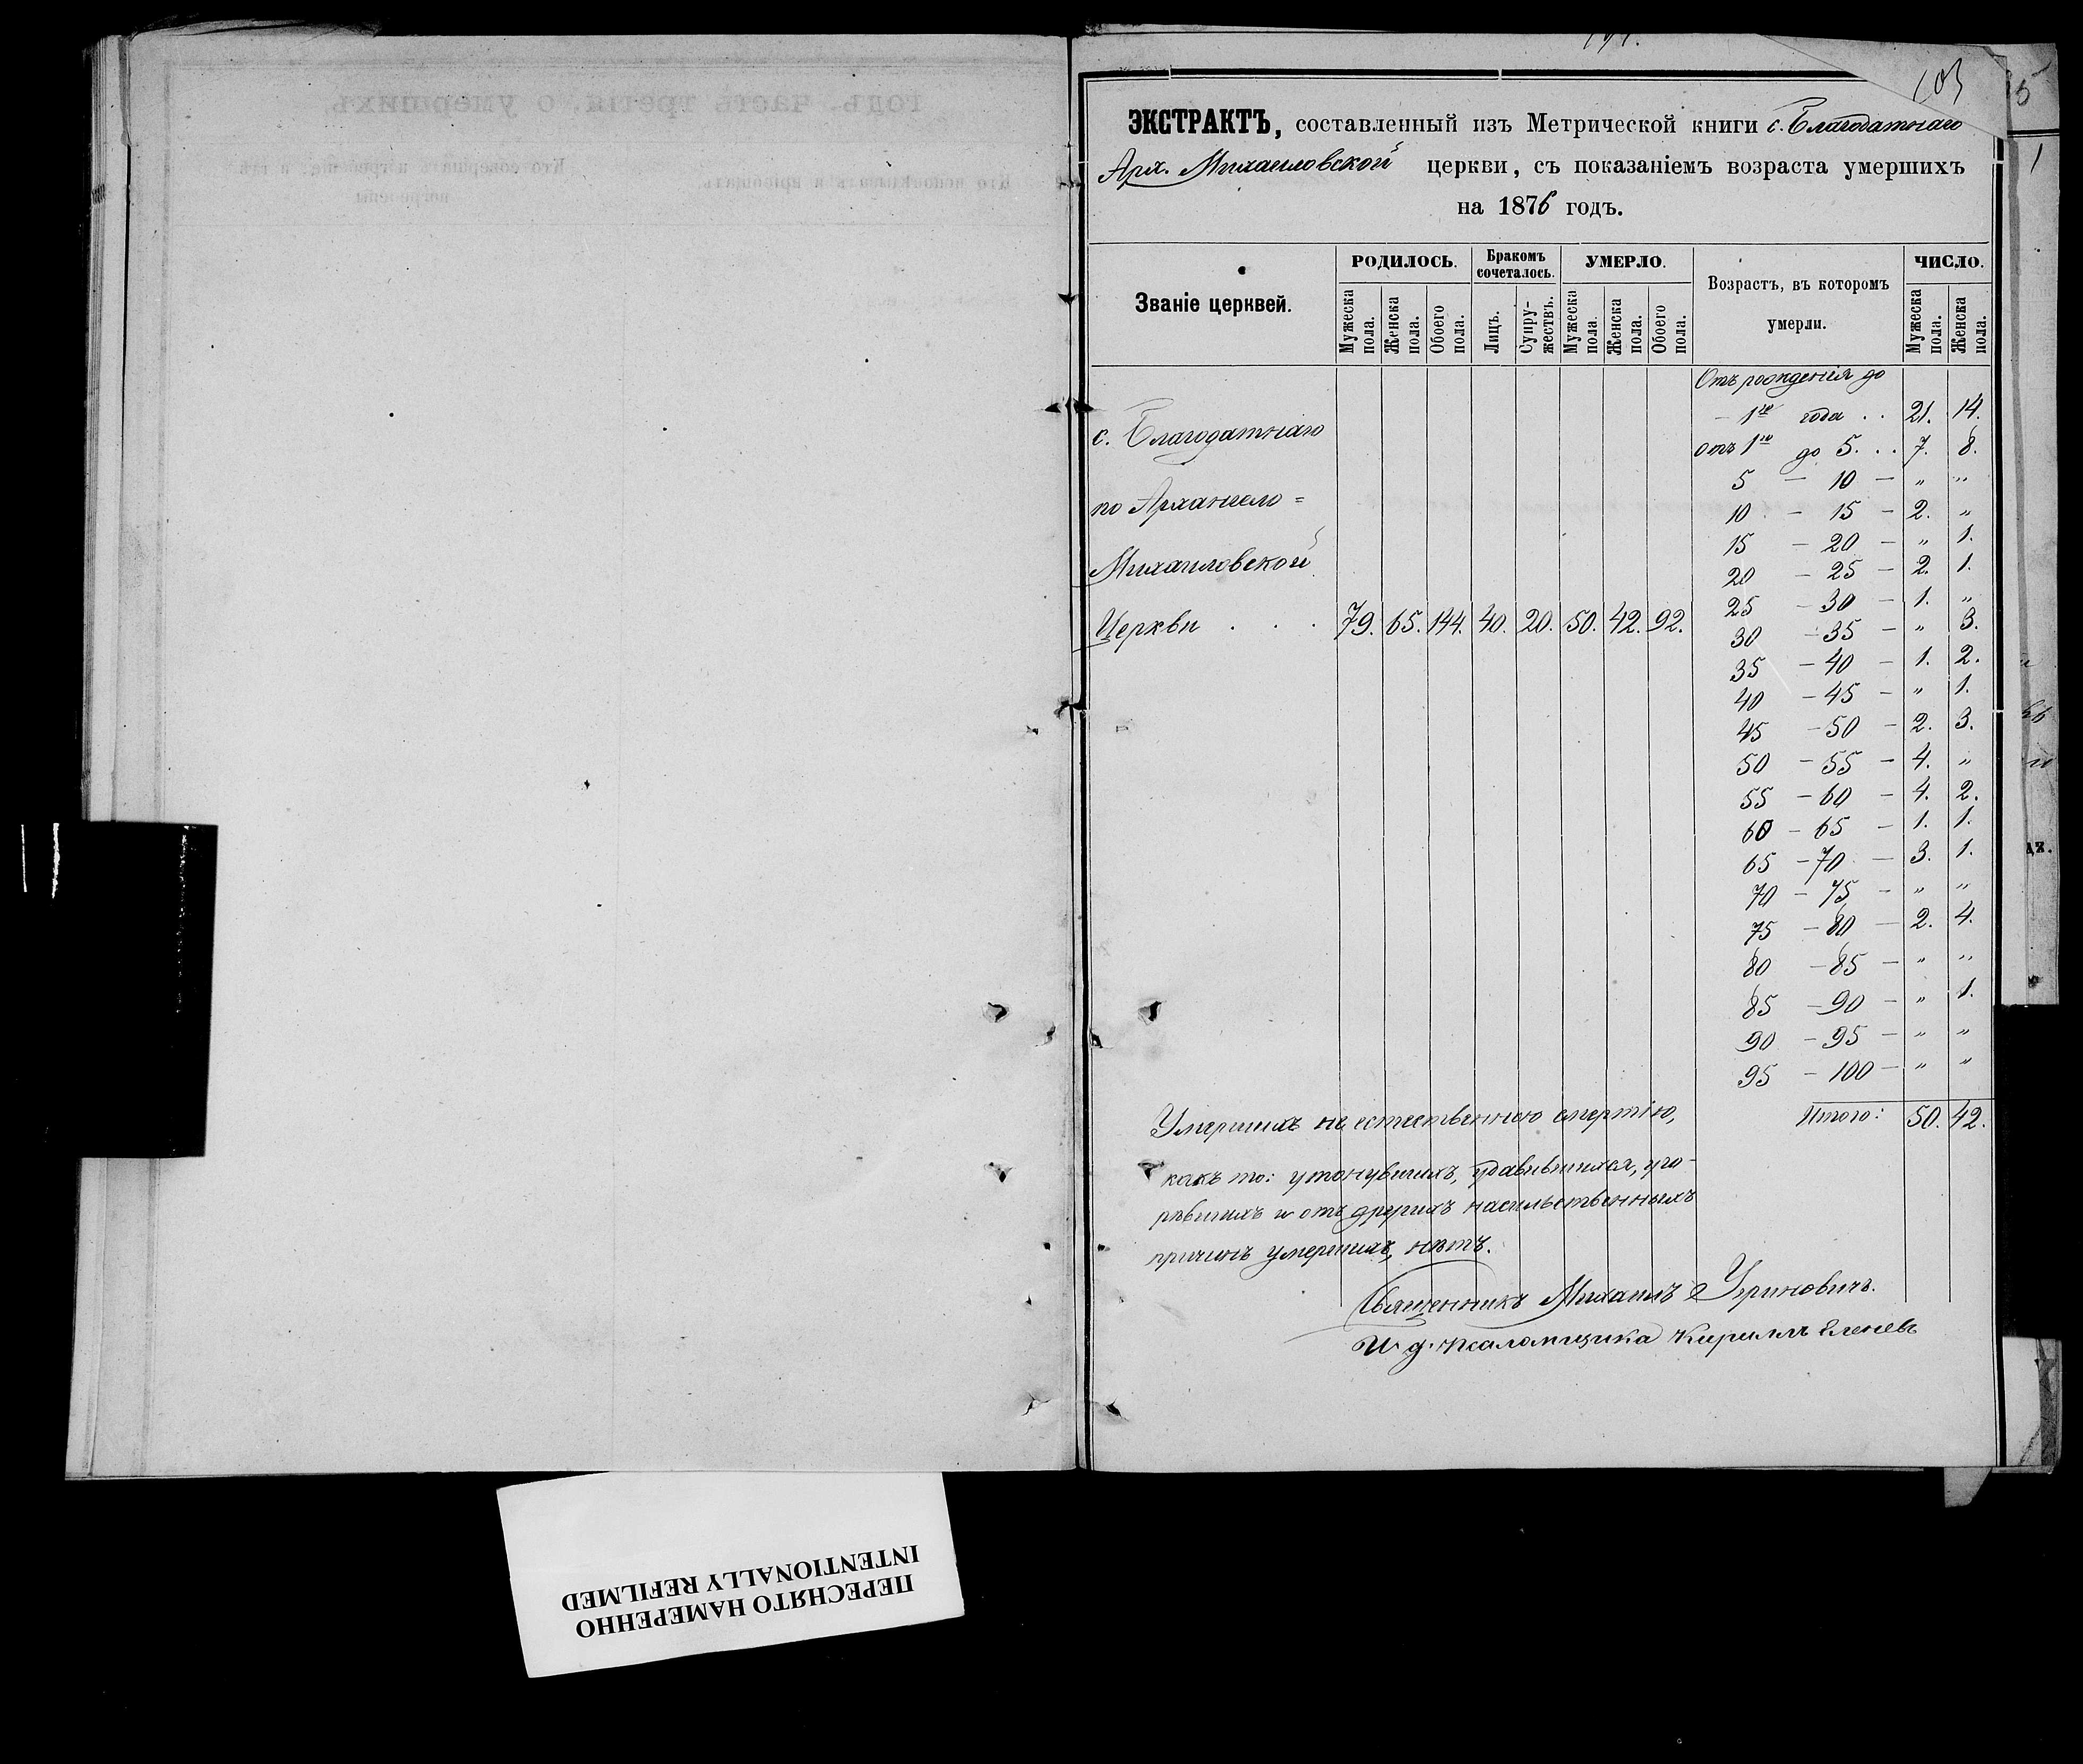 103
ЭКСТРАКТЪ, составленный изъ Метрической книги с. Благодатнаго
Арх. Михаиловской церкви, съ показаніемъ возраста умершихъ
на 1876 годъ.
Званіе церквей.
РОДИЛОСЬ.
Бракомъ сочеталось.
УМЕРЛО.
Возрастъ, въ которомъ
умерли.
ЧИСЛО.
Мужеска пола.
Женска пола.
Обоего пола.
Лицъ.
Супру-жествъ.
Мужеска пола.
Женска пола.
Обоего пола.
Мужеска пола.
Женска пола.
Отъ рожденія до
– 1го года . . 21. 14.
с. Благодатнаго
отъ 1го до 5. . . 7. 8.
5 – 10 – „ „
по Архангело =
10 – 15 – 2. „
15 – 20 – „ 1.
Михаиловской
20 – 25 – 2. 1.
25 – 30 – 1. „
Церкви . . . 79. 65. 144. 40. 20. 50. 42. 92.
30 – 35 – „ 3.
35 – 40 – 1. 2.
40 – 45 – „ 1.
45 – 50 – 2. 3.
50 – 55 – 4. „
55 – 60 – 4. 2.
60 – 65 – 1. 1.
65 – 70 – 3. 1.
70 – 75 – „ „
75 – 80 – 2. 4.
80 – 85 – „ „
85 – 90 – „ 1.
90 – 95 – „ „
95 – 100 – „ „
Итого: 50. 42.
Умершихъ не естественною смертію,
какъ то: утонувшихъ, удавившихся, уго-
рѣвшихъ и отъ другихъ насильственныхъ
причинъ умершихъ, нѣтъ.
Священникъ Михаилъ Угриновичъ.
И. д. псаломщика Кириллъ Еленевъ
ПЕРЕСНЯТО НАМЕРЕННО
INTENTIONALLY REFILMED